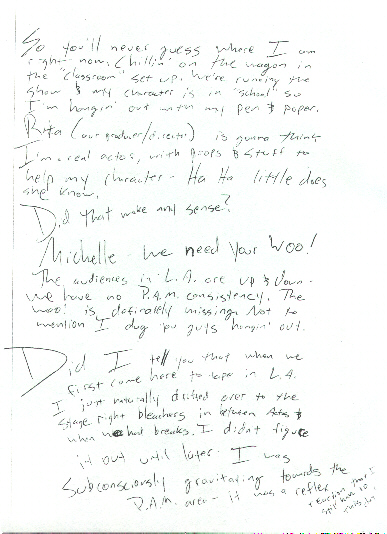 So you'll never guess where I am
right now. Chillin' on the wagon in
the "classroom" set up. We're running the
show & my character is in "school" so
I'm hangin' out with my pen & paper.
Rita (our producer/director) is gunna think
I'm a real actor, with props & stuff to
help my character - Ha Ha little does
she know.
Did that make any sense?
Michelle - we need your Woo!
The audiences in L.A. are up & down -
we have no P.A.M. consistency. The
woo is definately missing. Not to
mention I dug you guys hangin' out.
Did I tell you that when we
first came here to tape in L.A.
I just naturally drifted over to the
stage right bleachers in between Acts &
when we had breaks. I didn't figure
it out until later - I was
subconsciously gravitating towards the
P.A.M. area - it was a reflex
reaction that I